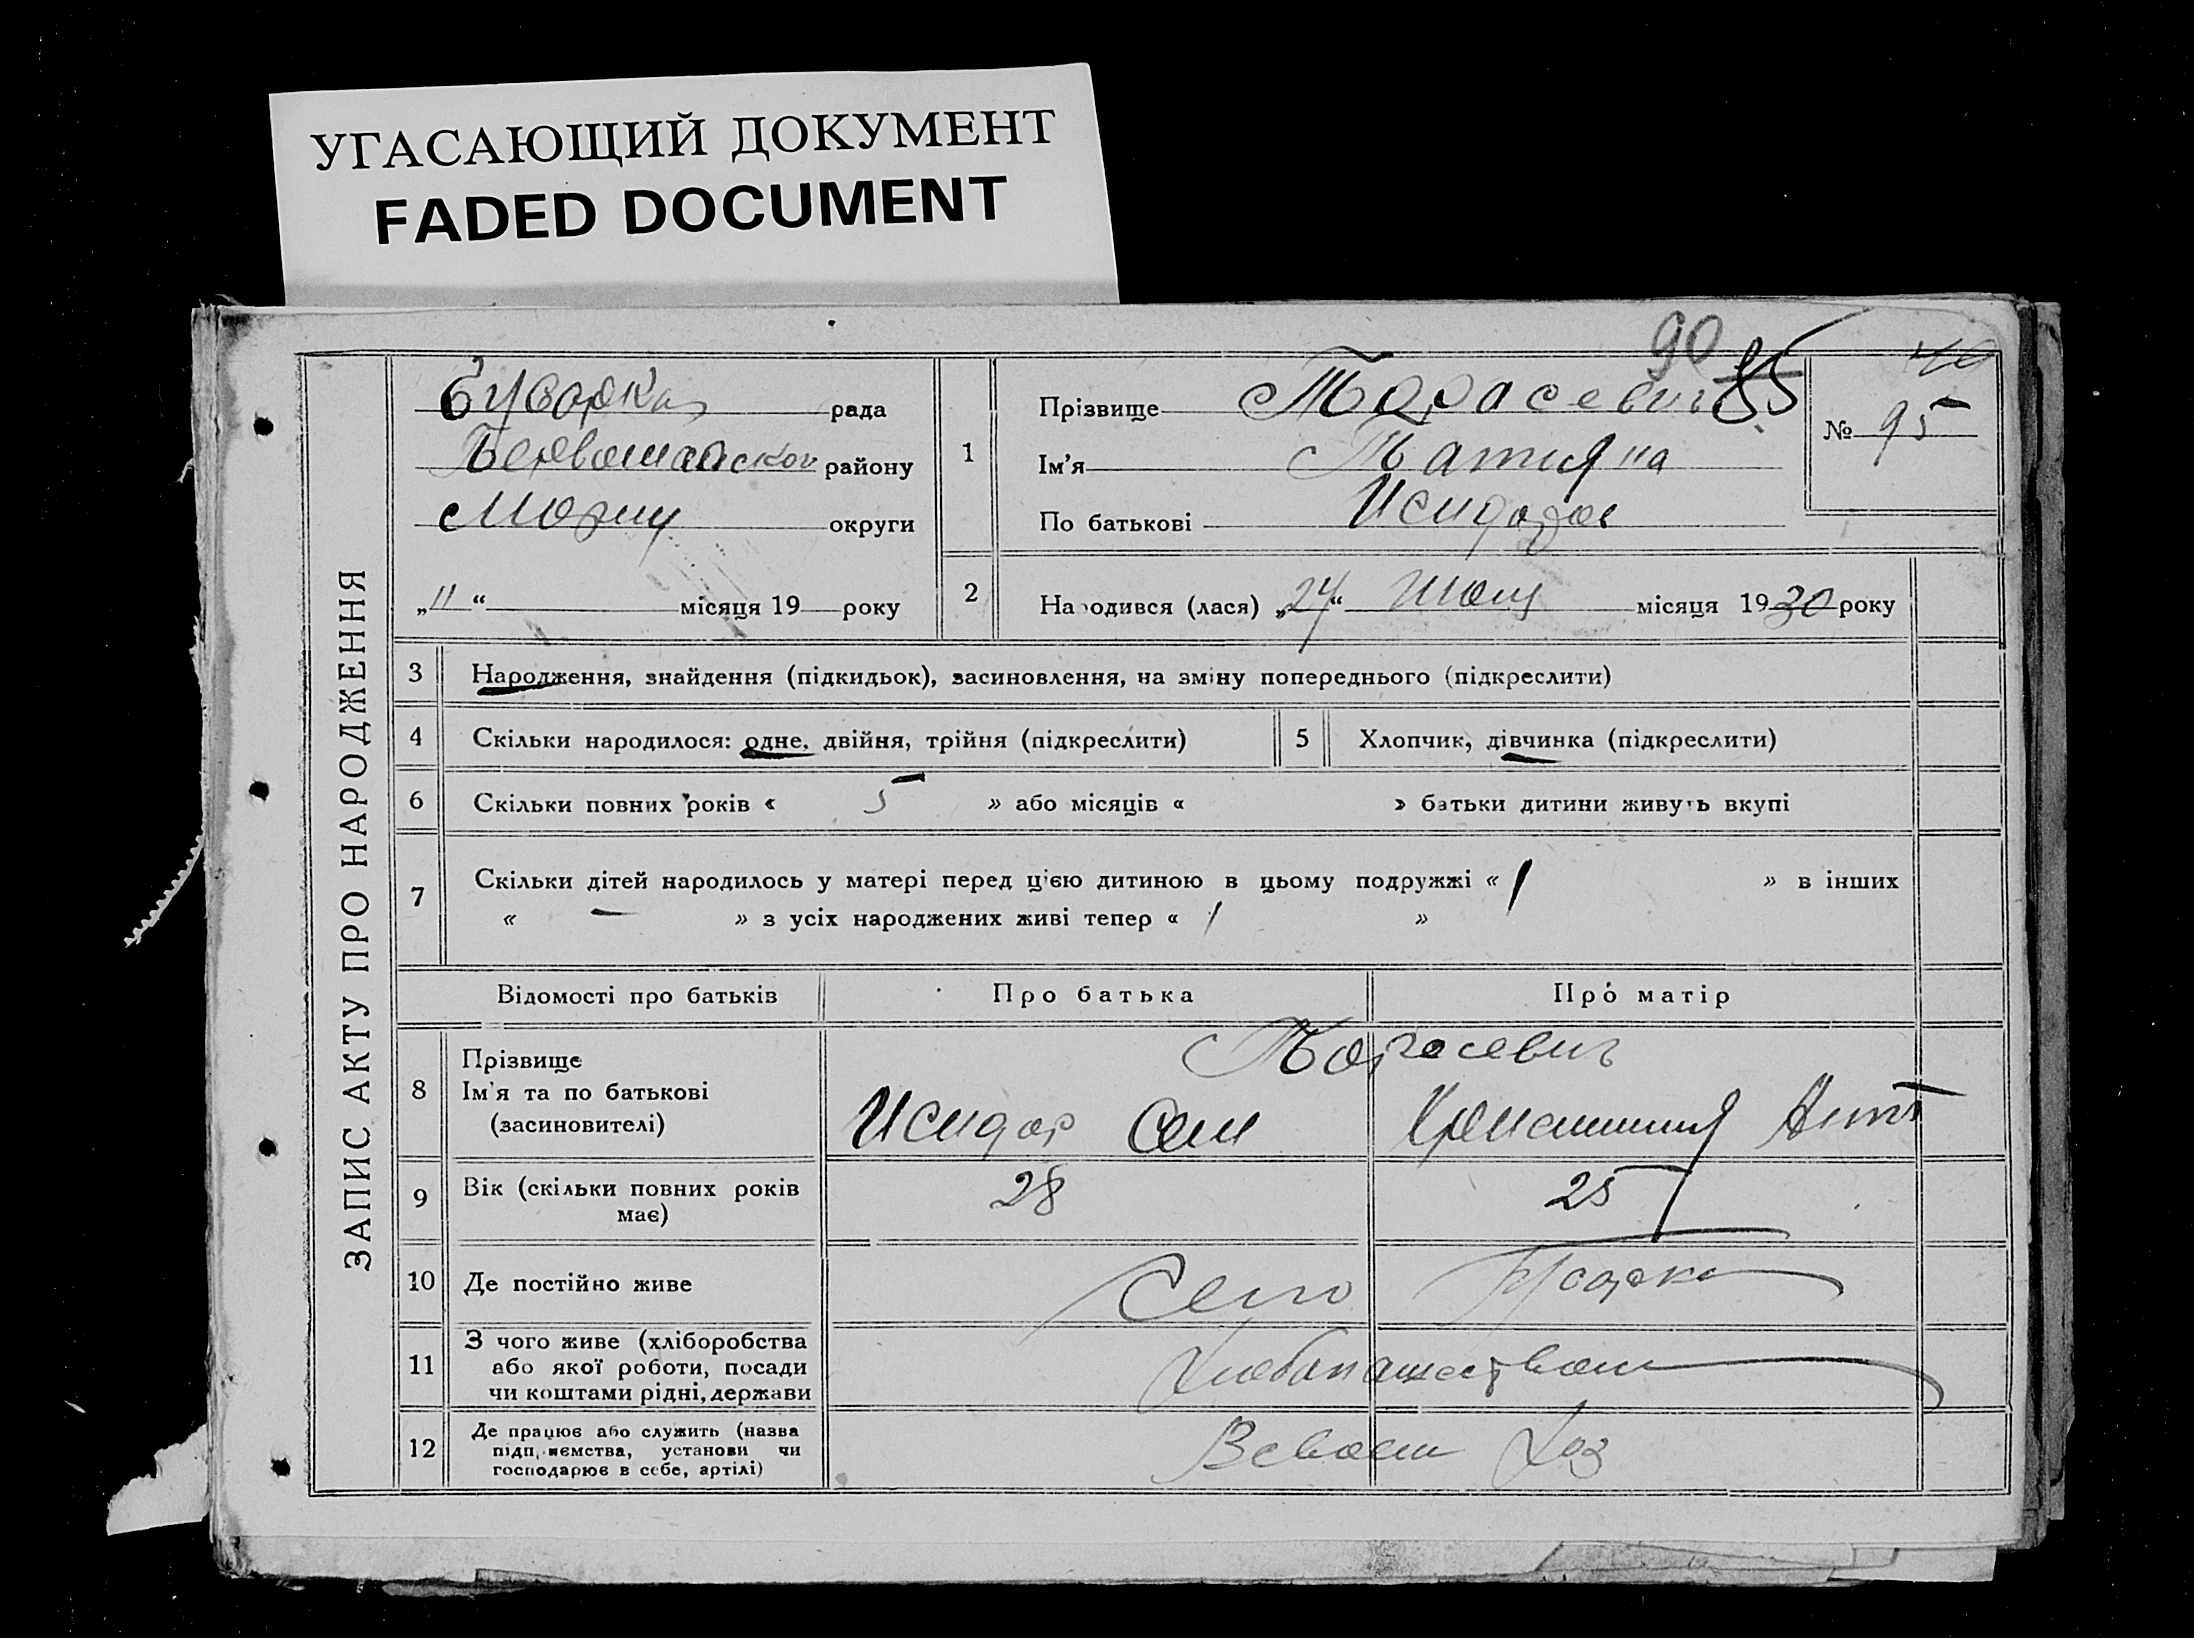 УГАСАЮЩИЙ ДОКУМЕНТ
FADED DOCUMENT
90 85
40
ЗАПИС АКТУ ПРО НАРОДЖЕННЯ
рада
району
округи
„11“ місяця 19 року
1
Прізвище Тарасевич
Ім’я Татияна
По батькові Исидор
№ 95
2
Народився (лася) „24“ місяця 1930 року
3 Народження, знайдення (підкидьок), засиновлення, на зміну попереднього (підкреслити)
4 Скільки народилося: одне, двійня, трійня (підкреслити)
5 Хлопчик, дівчинка (підкреслити)
6 Скільки повних років « 5 » або місяців « » батьки дитини живуть вкупі
7 Скільки дітей народилось у матері перед цією дитиною в цьому подружжі « 1 » в інших
« — » з усіх народжених живі тепер « 1 »
Відомості про батьків Про батька Про матір
8 Прізвище
Ім’я та по батькові
(засиновителі)
Тарасевич
Исидор Сем
9 Вік (скільки повних років
має)
28 25
10 Де постійно живе
Село
11 З чого живе (хліборобства
або якої роботи, посади
чи коштами рідні, держави
Хлебопашеством
12 Де працює або служить (назва
підприємства, установи чи
господарює в себе, артілі)
В своем Хоз